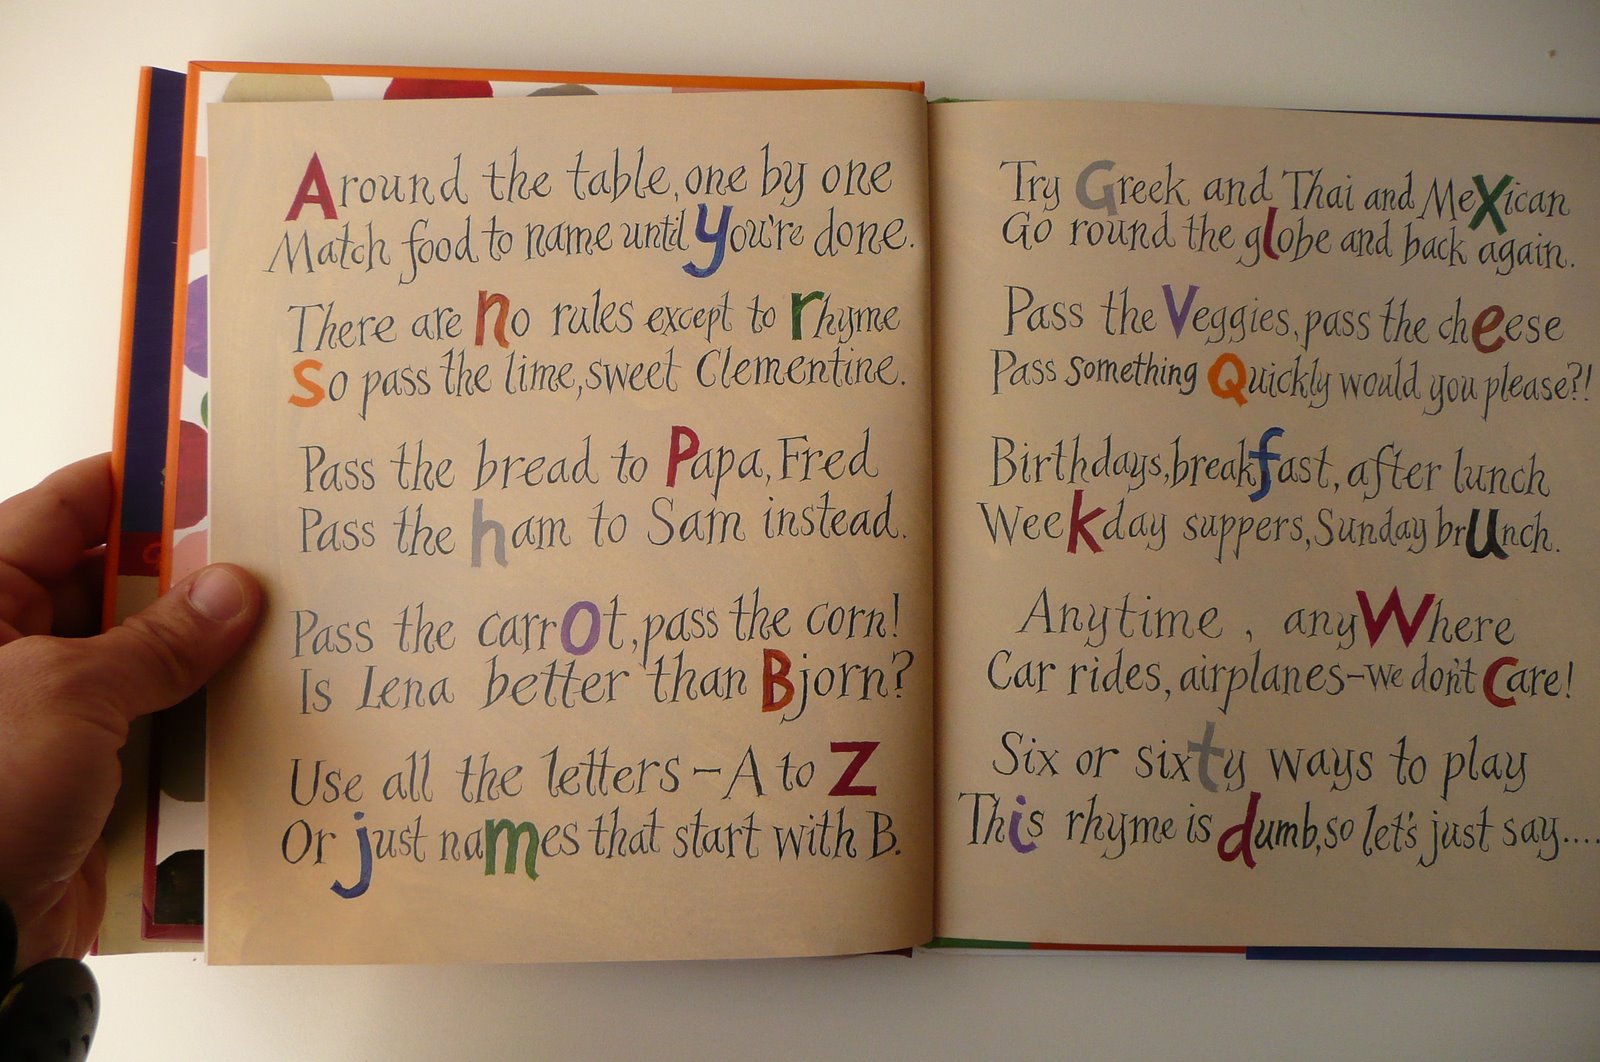 Around the table, one by one
Match food to name until you're done.
There are no rules except to rhyme
So pass the lime, sweet Clementine.
Pass the bread to Papa, Fred
Pass the ham to Sam instead.
Pass the carrot, pass the corn!
Is Lena better than Bjorn?
Use all the letters – A to Z
Or just names that start with B.
Try Greek and Thai and MeXican
Go round the globe and back again.
Pass the Veggies, pass the cheese
Pass something Quickly would you please?!
Birthdays, breakfast, after lunch
Weekday suppers, Sunday brUnch.
Anytime, anyWhere
Car rides, airplanes – we don't Care!
Six or sixty ways to play
This rhyme is dumb, so let's just say....